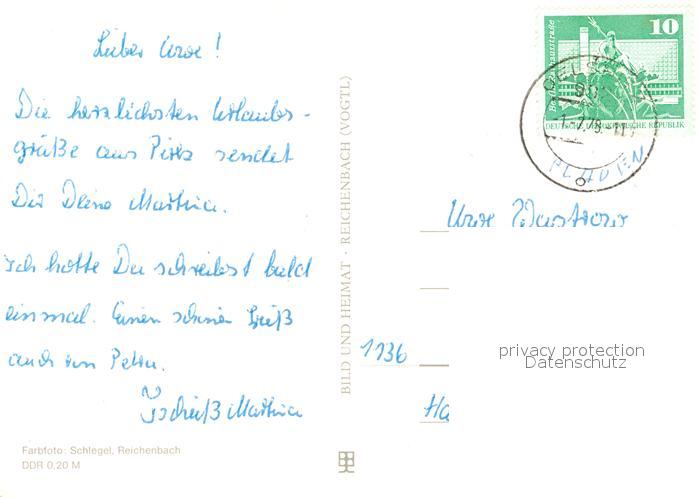 Lieber Uwe!
Die herzlichsten Urlaubs-
grüße aus Pirk sendet
Dir Deine Martina.
Ich hoffe Du schreibst bald
einmal. Einen schönen Gruß
auch von Petra.
Tschüß Martina
Farbfoto: Schlegel, Reichenbach
DDR 0,20 M
BILD UND HEIMAT · REICHENBACH (VOGTL)
10
DEUTSCHE DEMOKRATISCHE REPUBLIK
PLAUEN
Uwe
1136
privacy protection
Datenschutz